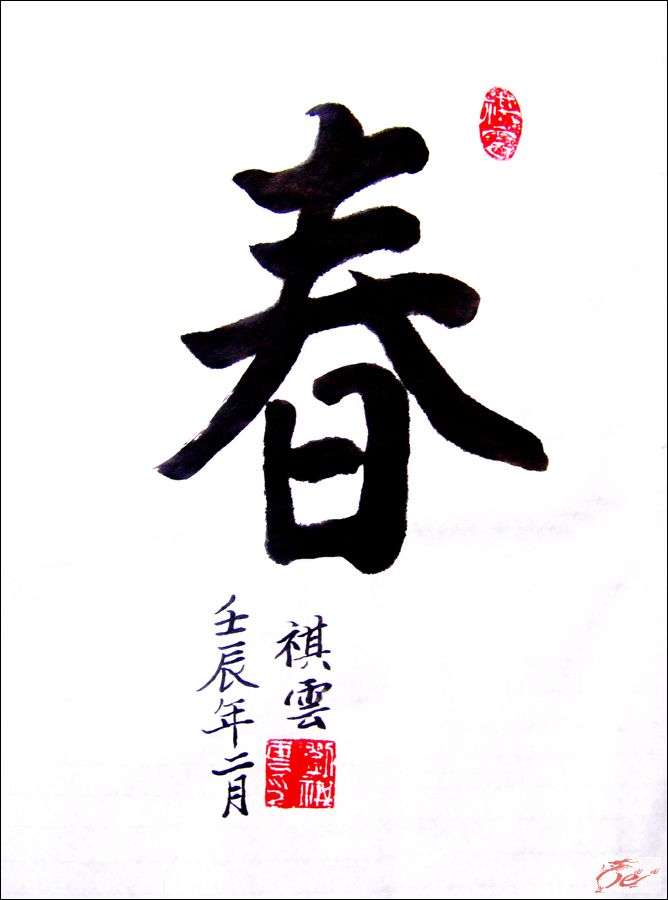 春
祺雲
壬辰年二月